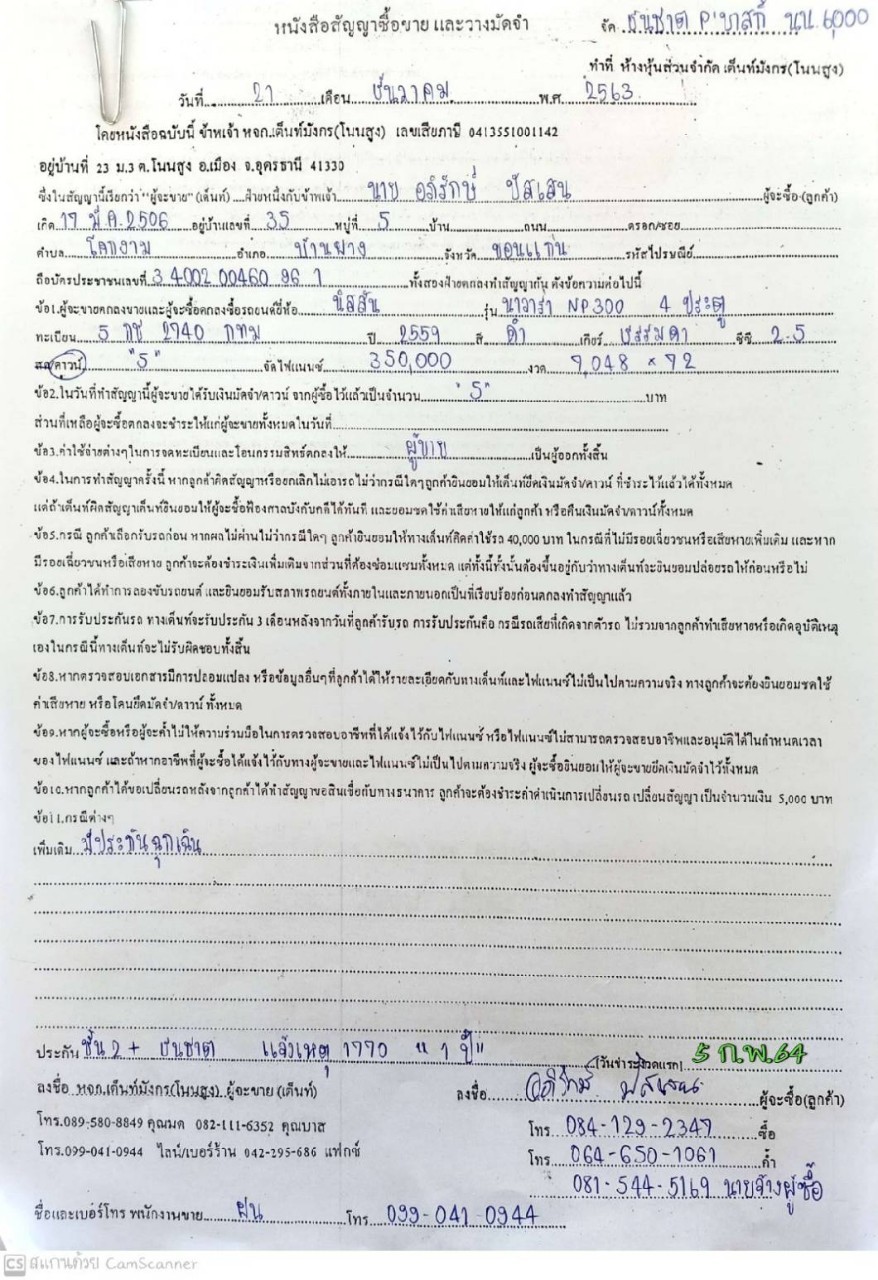 หนังสือสัญญาซื้อขาย และวางมัดจำ
จัด ธนชาต P'บาสก์ นน.6,000
ทำที่ ห้างหุ้นส่วนจำกัด เต็นท์มังกร(โนนสูง)
วันที่ 21 เดือน ธันวาคม พ.ศ. 2563
โดยหนังสือฉบับนี้ ข้าพเจ้า หจก.เต็นท์มังกร(โนนสูง) เลขเสียภาษี 0413551001142
อยู่บ้านที่ 23 ม.3 ต.โนนสูง อ.เมือง จ.อุดรธานี 41330
ซึ่งในสัญญานี้เรียกว่า "ผู้จะขาย" (เต็นท์) ฝ่ายหนึ่งกับข้าพเจ้า นาย อภิรักษ์ ปัสเสน ผู้จะซื้อ (ลูกค้า)
เกิด 17 มี.ค.2506 อยู่บ้านเลขที่ 35 หมู่ที่ 5 บ้าน ถนน ตรอก/ซอย
ตำบล โคกงาม อำเภอ บ้านฝาง จังหวัด ขอนแก่น รหัสไปรษณีย์
ถือบัตรประชาชนเลขที่ 3 4002 00460 96 1 ทั้งสองฝ่ายตกลงทำสัญญากัน ดังข้อความต่อไปนี้
ข้อ1.ผู้จะขายตกลงขายและผู้จะซื้อตกลงซื้อรถยนต์ยี่ห้อ นิสสัน รุ่น นาวาร่า NP300 4 ประตู
ทะเบียน 5 กช 2740 กทม ปี 2559 สี ดำ เกียร์ ธรรมดา ซีซี 2.5
สด/ดาวน์ "5" จัดไฟแนนซ์ 350,000 งวด 7,048 × 72
ข้อ2.ในวันที่ทำสัญญานี้ผู้จะขายได้รับเงินมัดจำ/ดาวน์ จากผู้ซื้อไว้แล้วเป็นจำนวน "5" บาท
ส่วนที่เหลือผู้จะซื้อตกลงจะชำระให้แก่ผู้จะขายทั้งหมดในวันที่
ข้อ3.ค่าใช้จ่ายต่างๆในการจดทะเบียนและโอนกรรมสิทธ์ตกลงให้ ผู้ขาย เป็นผู้ออกทั้งสิ้น
ข้อ4.ในการทำสัญญาครั้งนี้ หากลูกค้าผิดสัญญาหรือยกเลิกไม่เอารถ ไม่ว่ากรณีใดๆลูกค้ายินยอมให้เต็นท์ยึดเงินมัดจำ/ดาวน์ ที่ชำระไว้แล้วได้ทั้งหมด
แต่ถ้าเต็นท์ผิดสัญญาเต็นท์ยินยอมให้ผู้จะซื้อฟ้องศาลบังคับคดีได้ทันที และยอมชดใช้ค่าเสียหายให้แก่ลูกค้า หรือคืนเงินมัดจำ/ดาวน์ทั้งหมด
ข้อ5.กรณี ลูกค้าเลือกรับรถก่อน หากผลไม่ผ่านไม่ว่ากรณีใดๆ ลูกค้ายินยอมให้ทางเต็นท์คิดค่าใช้รถ 40,000 บาท ในกรณีที่ไม่มีรอยเฉี่ยวชนหรือเสียหายเพิ่มเติม และหาก
มีรอยเฉี่ยวชนหรือเสียหาย ลูกค้าจะต้องชำระเงินเพิ่มเติมจากส่วนที่ต้องซ่อมแซมทั้งหมด แต่ทั้งนี้ทั้งนั้นต้องขึ้นอยู่กับว่าทางเต็นท์จะยินยอมปล่อยรถให้ก่อนหรือไม่
ข้อ6.ลูกค้าได้ทำการลองขับรถยนต์ และยินยอมรับสภาพรถยนต์ทั้งภายในและภายนอกเป็นที่เรียบร้อยก่อนตกลงทำสัญญาแล้ว
ข้อ7.การรับประกันรถ ทางเต็นท์จะรับประกัน 3 เดือนหลังจากวันที่ลูกค้ารับรถ การรับประกันคือ กรณีรถเสียที่เกิดจากตัวรถ ไม่รวมจากลูกค้าทำเสียหายหรือเกิดอุบัติเหตุ
เองในกรณีนี้ทางเต็นท์จะไม่รับผิดชอบทั้งสิ้น
ข้อ8.หากตรวจสอบเอกสารมีการปลอมแปลง หรือข้อมูลอื่นๆที่ลูกค้าได้ให้รายละเอียดกับทางเต็นท์และไฟแนนซ์ไม่เป็นไปตามความจริง ทางลูกค้าจะต้องยินยอมชดใช้
ค่าเสียหาย หรือโดนยึดมัดจำ/ดาวน์ ทั้งหมด
ข้อ9.หากผู้จะซื้อหรือผู้จะค้ำไม่ให้ความร่วมมือในการตรวจสอบอาชีพที่ได้แจ้งไว้กับไฟแนนซ์ หรือไฟแนนซ์ไม่สามารถตรวจสอบอาชีพและอนุมัติได้ในกำหนดเวลา
ของไฟแนนซ์ และถ้าหากอาชีพที่ผู้จะซื้อได้แจ้งไว้กับทางผู้จะขายและไฟแนนซ์ไม่เป็นไปตามความจริง ผู้จะซื้อยินยอมให้ผู้จะขายยึดเงินมัดจำไว้ทั้งหมด
ข้อ10.หากลูกค้าได้ขอเปลี่ยนรถหลังจากลูกค้าได้ทำสัญญาขอสินเชื่อกับทางธนาคาร ลูกค้าจะต้องชำระค่าดำเนินการเปลี่ยนรถ เปลี่ยนสัญญา เป็นจำนวนเงิน 5,000 บาท
ข้อ11.กรณีต่างๆ
เพิ่มเติม มีประกันฉุกเฉิน
ประกัน ชั้น 2+ ธนชาต แจ้งเหตุ 1770 "1 ปี" (วันชำระงวดแรก) 5 ก.พ.64
ลงชื่อ หจก.เต็นท์มังกร(โนนสูง) ผู้จะขาย (เต็นท์) ลงชื่อ อภิรักษ์ ปัสเสน ผู้จะซื้อ(ลูกค้า)
โทร.089-580-8849 คุณมด 082-111-6352 คุณบาส โทร 084-129-2347 ซื้อ
โทร.099-041-0944 ไลน์/เบอร์ร้าน 042-295-686 แฟกซ์ โทร 064-650-1061 ค้ำ
081-544-5169 นายจ้างผู้ซื้อ
ชื่อและเบอร์โทร พนักงานขาย ฝน โทร 099-041 0944
CS สแกนด้วย CamScanner